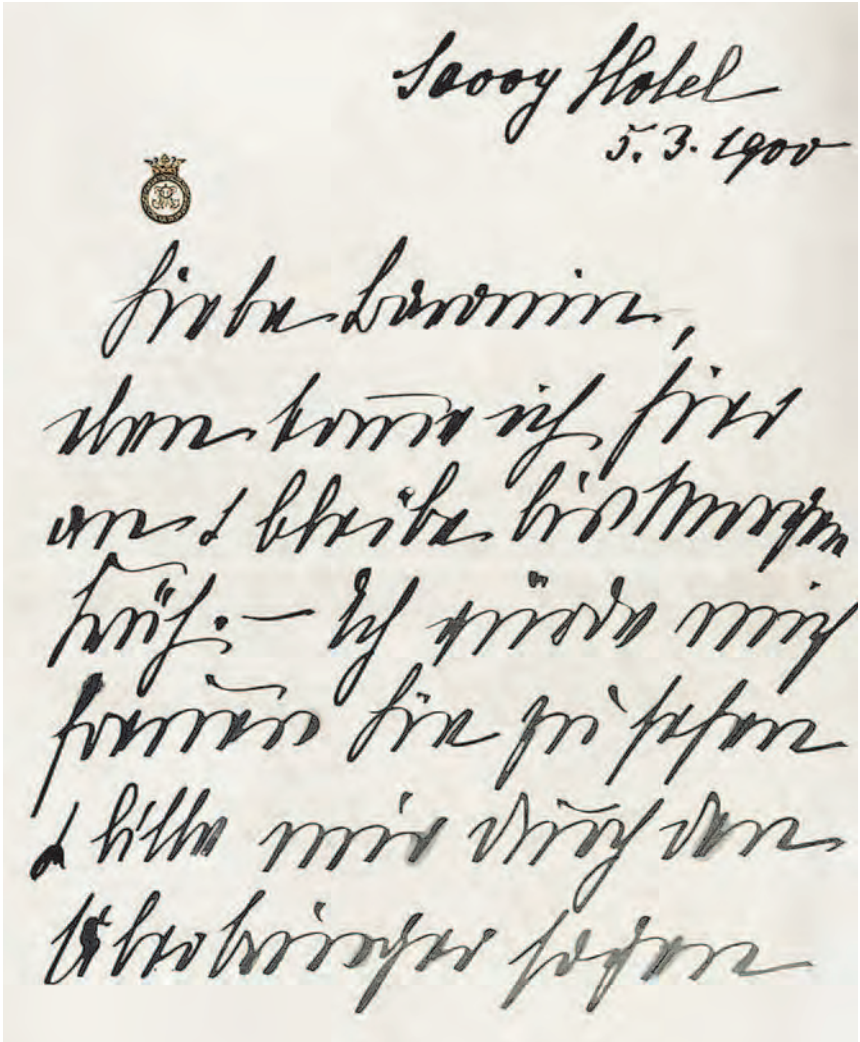 Savoy Hotel
5. 3. 1900
Liebe Baronin,
eben kom̄e ich hier
an & bleibe bis Morgen
Früh. – Ich würde mich
freuen Sie zu sehen
& bitte mir durch den
Überbringer sagen